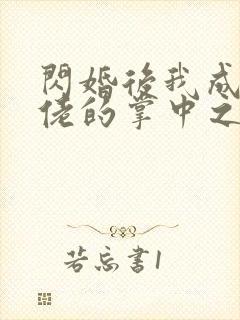 閃婚後我成
佬的掌中之
若忘書1